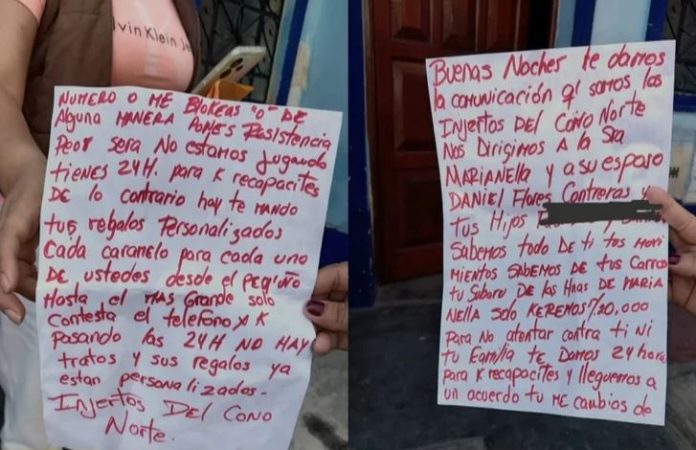 lvin Klein Je
NUMERO O ME BLOKEAS "O" DE
Alguna MANERA PONES Resistencia
Peor sera No estamos jugando
tienes 24H. para K recapacites
DE lo contrario hay te MANDO
tus regalos Personalizados
Cada caramelo para cada uno
DE ustedes desde el PEQUEÑO
Hasta el MAS Grande solo
Contesta el telefono X K
Pasando las 24H NO HAY
tratos y sus regalos ya
estan personalizados-
INJERTOS DEL CONO
NORTE.
BUENAS NOCHES te damos
la comunicación q' somos los
INJERTOS DEL CONO NORTE
NOS DIRIGIMOS A LA SRA
MARIANELLA Y a su esposo
DANIEL Flores Contreras y
tus Hijos
Sabemos todo DE ti tus Movi
mientos SABEMOS DE tus Carros
tu Subaro DE las Hijas DE MARIA
NELLA solo KEREMOS S/20,000
Para No atentar contra ti Ni
tu Familia te Damos 24 hora
para K recapacites y lleguemos a
un acuerdo tu ME cambios de